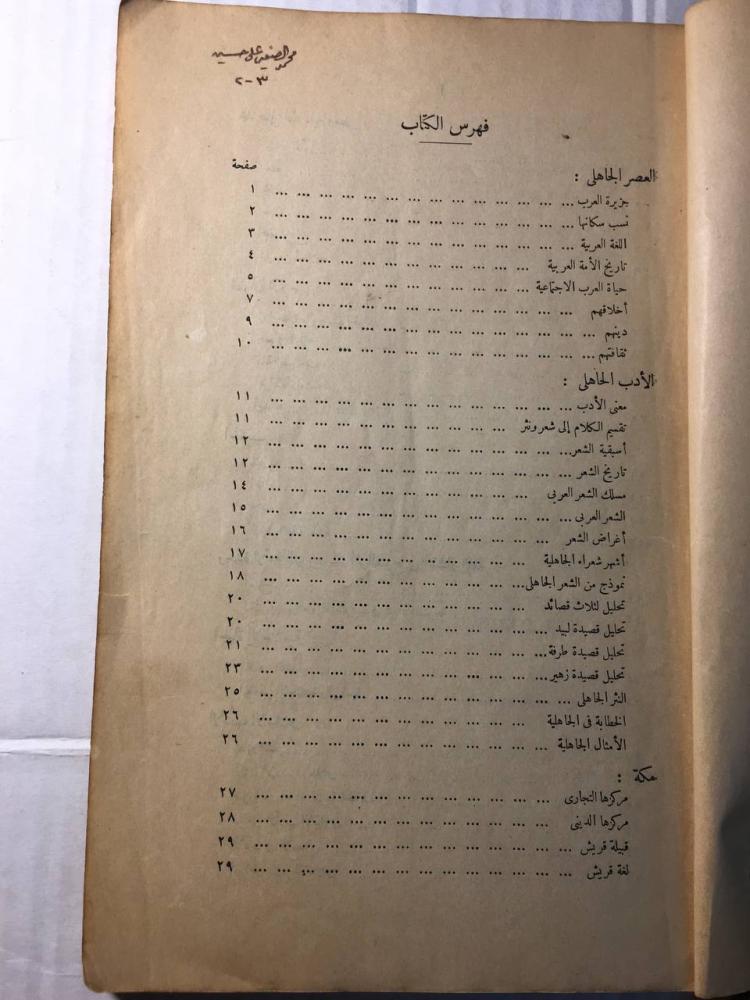 محمد الصغير على حسين
٣-٢
فهرس الكتاب
صفحة
العصر الجاهلى :
جزيرة العرب ... ١
نسب سكانها ... ٢
اللغة العربية ... ٣
تاريخ الأمة العربية ... ٤
حياة العرب الاجتماعية ... ٥
أخلاقهم ... ٧
دينهم ... ٩
ثقافتهم ... ١٠
الأدب الجاهلى :
معنى الأدب ... ١١
تقسيم الكلام إلى شعر ونثر ... ١١
أسبقية الشعر ... ١٢
تاريخ الشعر ... ١٢
مسلك الشعر العربى ... ١٤
الشعر العربى ... ١٥
أغراض الشعر ... ١٦
أشهر شعراء الجاهلية ... ١٧
نموذج من الشعر الجاهلى ... ١٨
تحليل لثلاث قصائد ... ٢٠
تحليل قصيدة لبيد ... ٢٠
تحليل قصيدة طرفة ... ٢١
تحليل قصيدة زهير ... ٢٣
النثر الجاهلى ... ٢٥
الخطابة فى الجاهلية ... ٢٦
الأمثال الجاهلية ... ٢٦
مكة :
مركزها التجارى ... ٢٧
مركزها الدينى ... ٢٨
قبيلة قريش ... ٢٩
لغة قريش ... ٢٩